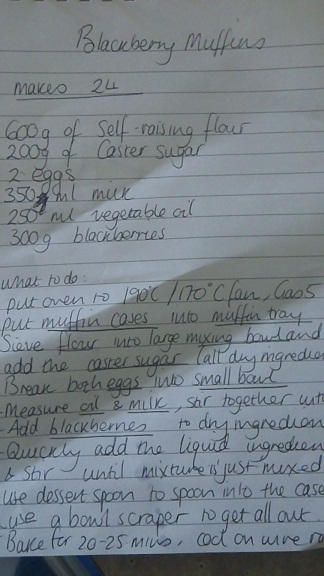 Blackberry Muffins
makes 24
600g of Self-raising flour
200g of Caster sugar
2 eggs
350 ml milk
250 ml vegetable oil
300g blackberries
What to do:
put oven to 190°C/170°C fan, Gas 5
put muffin cases into muffin tray
Sieve flour into large mixing bowl and
add the caster sugar (all dry ingredien
Break both eggs into small bowl
-Measure oil & milk, stir together
-Add blackberries to dry ingredien
-Quickly add the liquid ingredien
& stir until mixture is just mixed
use dessert spoon to spoon into the case
use a bowl scraper to get all out.
Bake for 20-25 mins, cool on wire